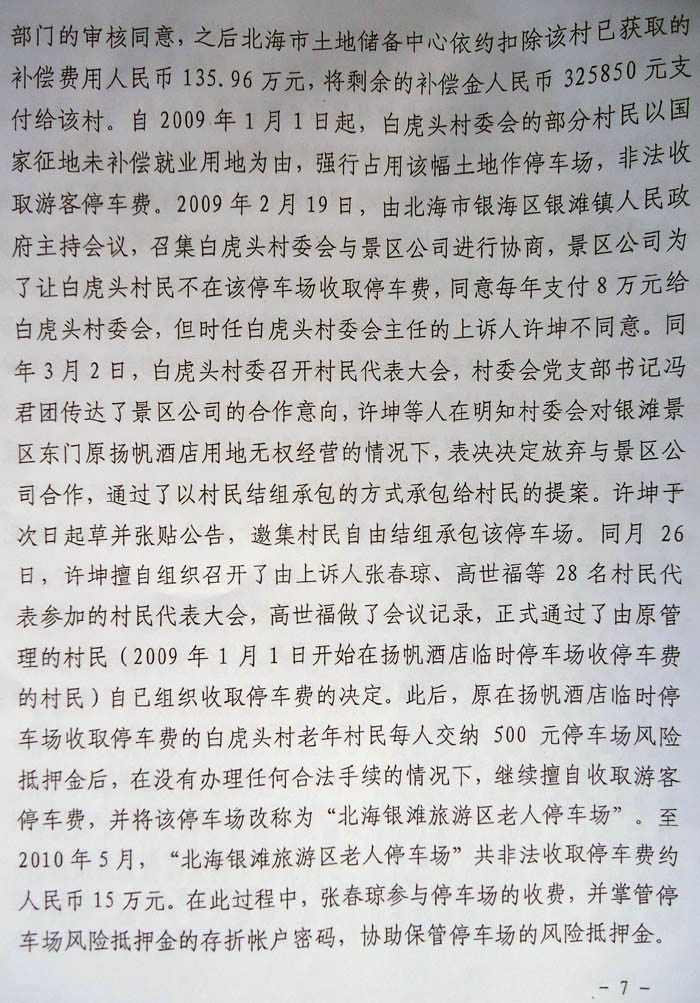 部门的审核同意，之后北海市土地储备中心依约扣除该村已获取的
补偿费用人民币 135.96 万元，将剩余的补偿金人民币 325850 元支
付给该村。自 2009 年 1 月 1 日起，白虎头村委会的部分村民以国
家征地未补偿就业用地为由，强行占用该幅土地作停车场，非法收
取游客停车费。2009 年 2 月 19 日，由北海市银海区银滩镇人民政
府主持会议，召集白虎头村委会与景区公司进行协商，景区公司为
了让白虎头村民不在该停车场收取停车费，同意每年支付 8 万元给
白虎头村委会，但时任白虎头村委会主任的上诉人许坤不同意。同
年 3 月 2 日，白虎头村委召开村民代表大会，村委会党支部书记冯
君团传达了景区公司的合作意向，许坤等人在明知村委会对银滩景
区东门原扬帆酒店用地无权经营的情况下，表决决定放弃与景区公
司合作，通过了以村民结组承包的方式承包给村民的提案。许坤于
次日起草并张贴公告，邀集村民自由结组承包该停车场。同月 26
日，许坤擅自组织召开了由上诉人张春琼、高世福等 28 名村民代
表参加的村民代表大会，高世福做了会议记录，正式通过了由原管
理的村民（2009 年 1 月 1 日开始在扬帆酒店临时停车场收停车费
的村民）自已组织收取停车费的决定。此后，原在扬帆酒店临时停
车场收取停车费的白虎头村老年村民每人交纳 500 元停车场风险
抵押金后，在没有办理任何合法手续的情况下，继续擅自收取游客
停车费，并将该停车场改称为“北海银滩旅游区老人停车场”。至
2010 年 5 月，“北海银滩旅游区老人停车场”共非法收取停车费约
人民币 15 万元。在此过程中，张春琼参与停车场的收费，并掌管停
车场风险抵押金的存折帐户密码，协助保管停车场的风险抵押金。
- 7 -